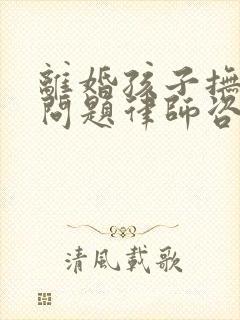 離婚孩子撫
問題律師咨
清風載歌